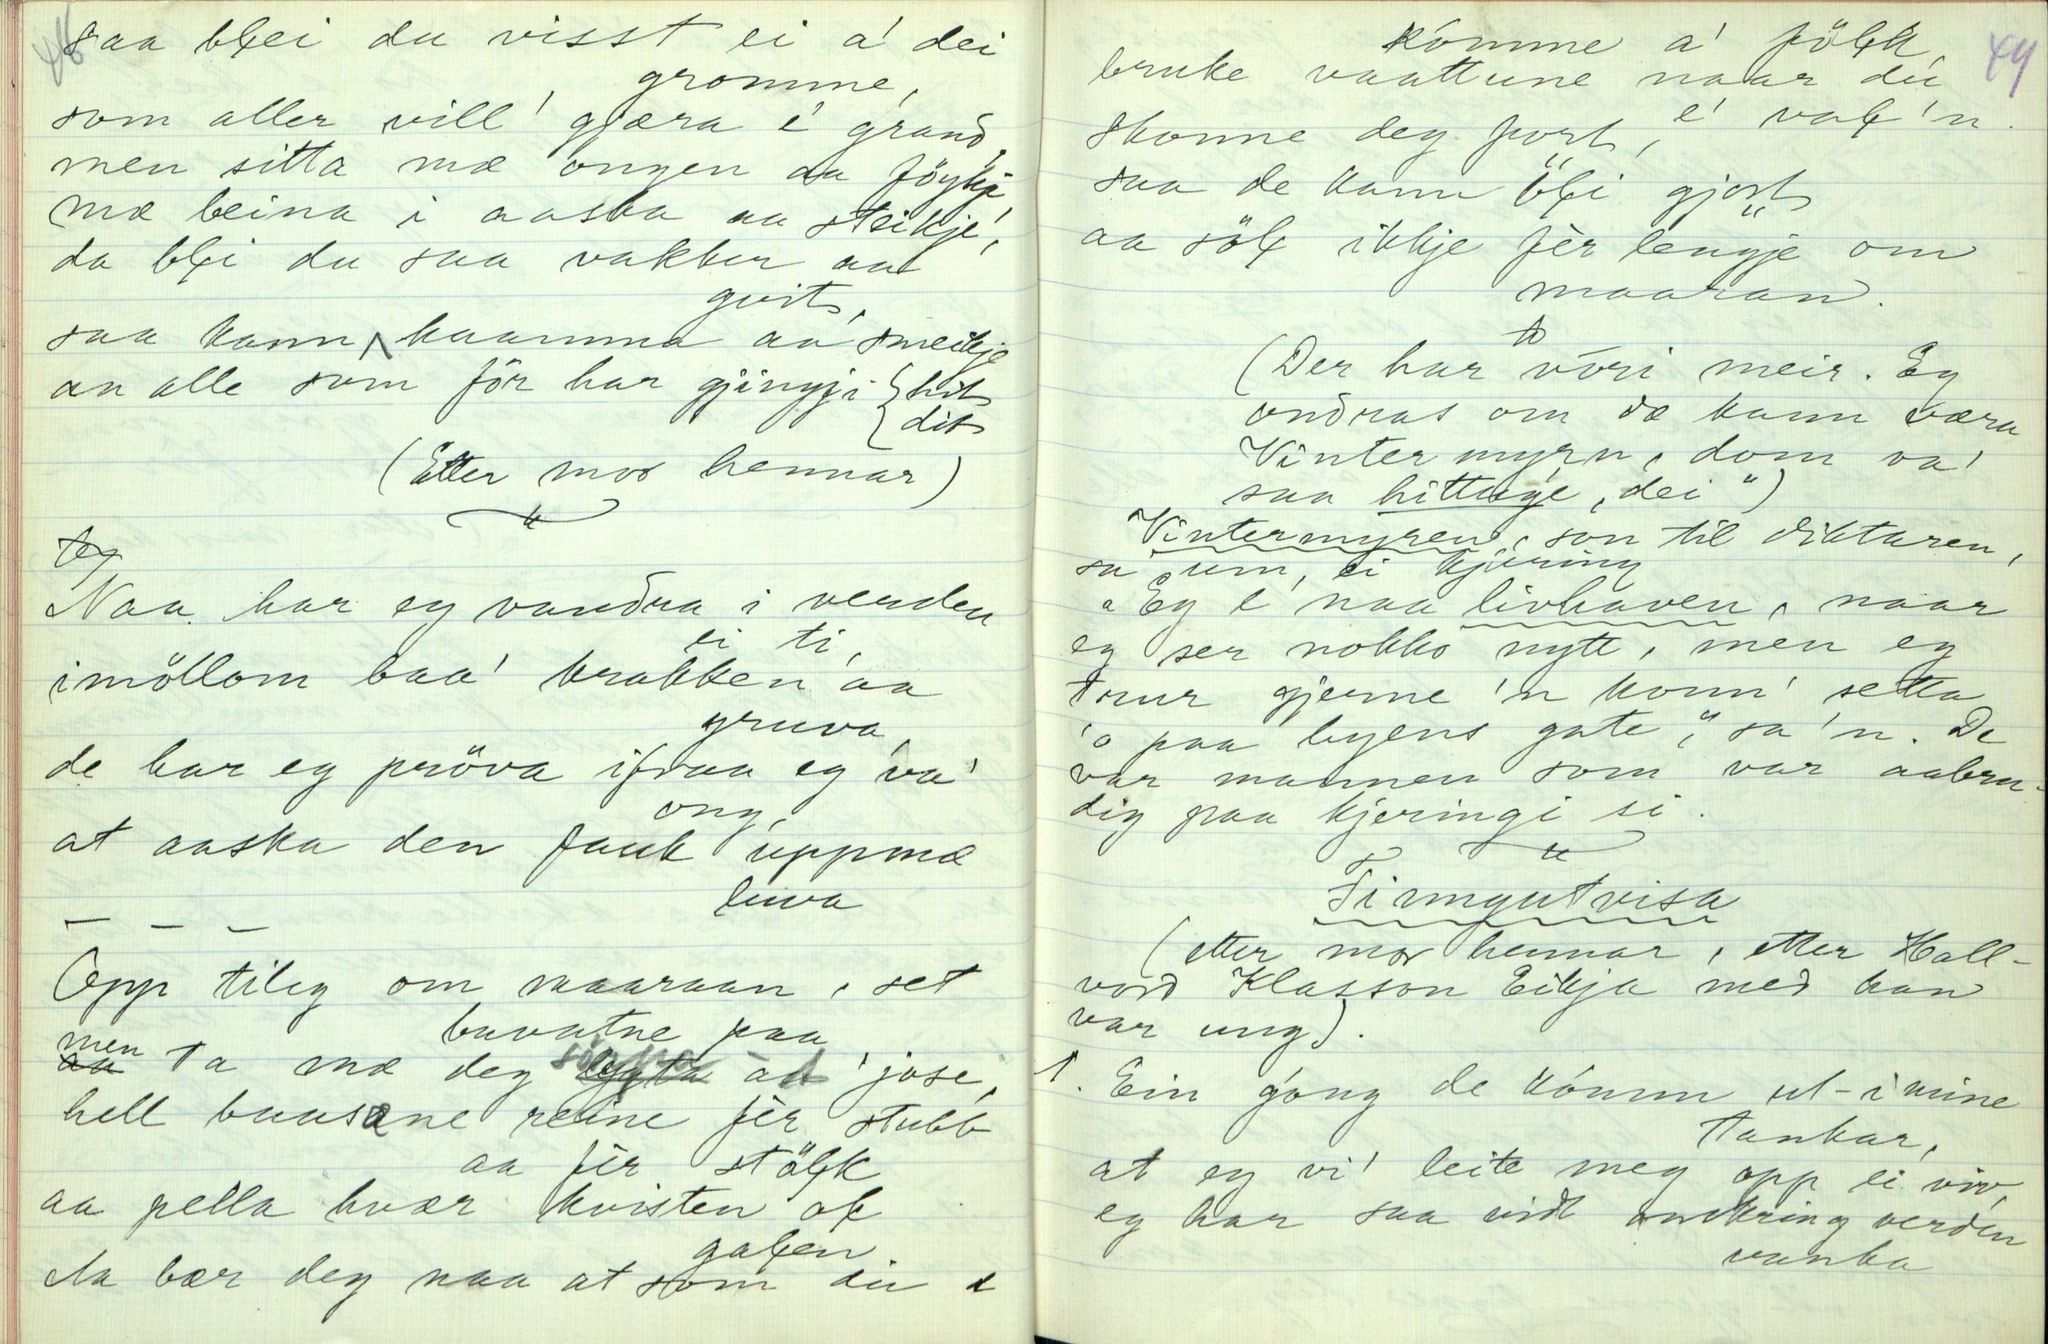 48
saa blei du visst ei a' dei
gromme,
som aller vill' gjæra e' grand,
men sitta mæ ongen aa föykje
mæ beina i aaska aa steikje,
da blei du saa vakker aa
gvit,
saa kann haamma aa smeikje
an alle som för har gjingji {hit
{dit
(Etter mor hennar)
Naa har eg vandra i verden
ei ti,
imöllom baa' krakken aa
gruva,
de har eg pröva ifraa eg va'
ong,
at aaska den fauk uppmæ
luva
— — —
Opp tileg om maaraan, set
buvatne paa
men ta mæ deg at jose,
hell baasane reine fèr stubb
aa fèr stölk
aa pella hvær kvisten ol
galen.
Ta bær deg naa at som du
49
komme a' folk,
bruke vaattune naar du
e' val'n.
skonne deg fort,
saa de kann bli gjort
aa söl ikkje fèr lengje om
maaran."
(Der har vóri meir. Eg
ondras om dæ kann væra
Vintermyrn, dom va'
saa hittuge, dei")
Vintermyren, son til diktaren,
sa um ei kjæring
"Eg e' naa livhaven, naar
eg ser nokko nytt, men eg
trur gjerne 'n konn' setta
'o paa byens gate", sa 'n. De
var mannen som var aabru-
dig paa kjeringi si.
Finngutvisa
(etter mor hennar, etter Hall-
vord Klasson Eikja med han
var ung).
1. Ein góng de kómm ut-i mine
tankar,
at eg vi' leite meg opp ei viv,
eg har saa vidt omkring verden
vanka